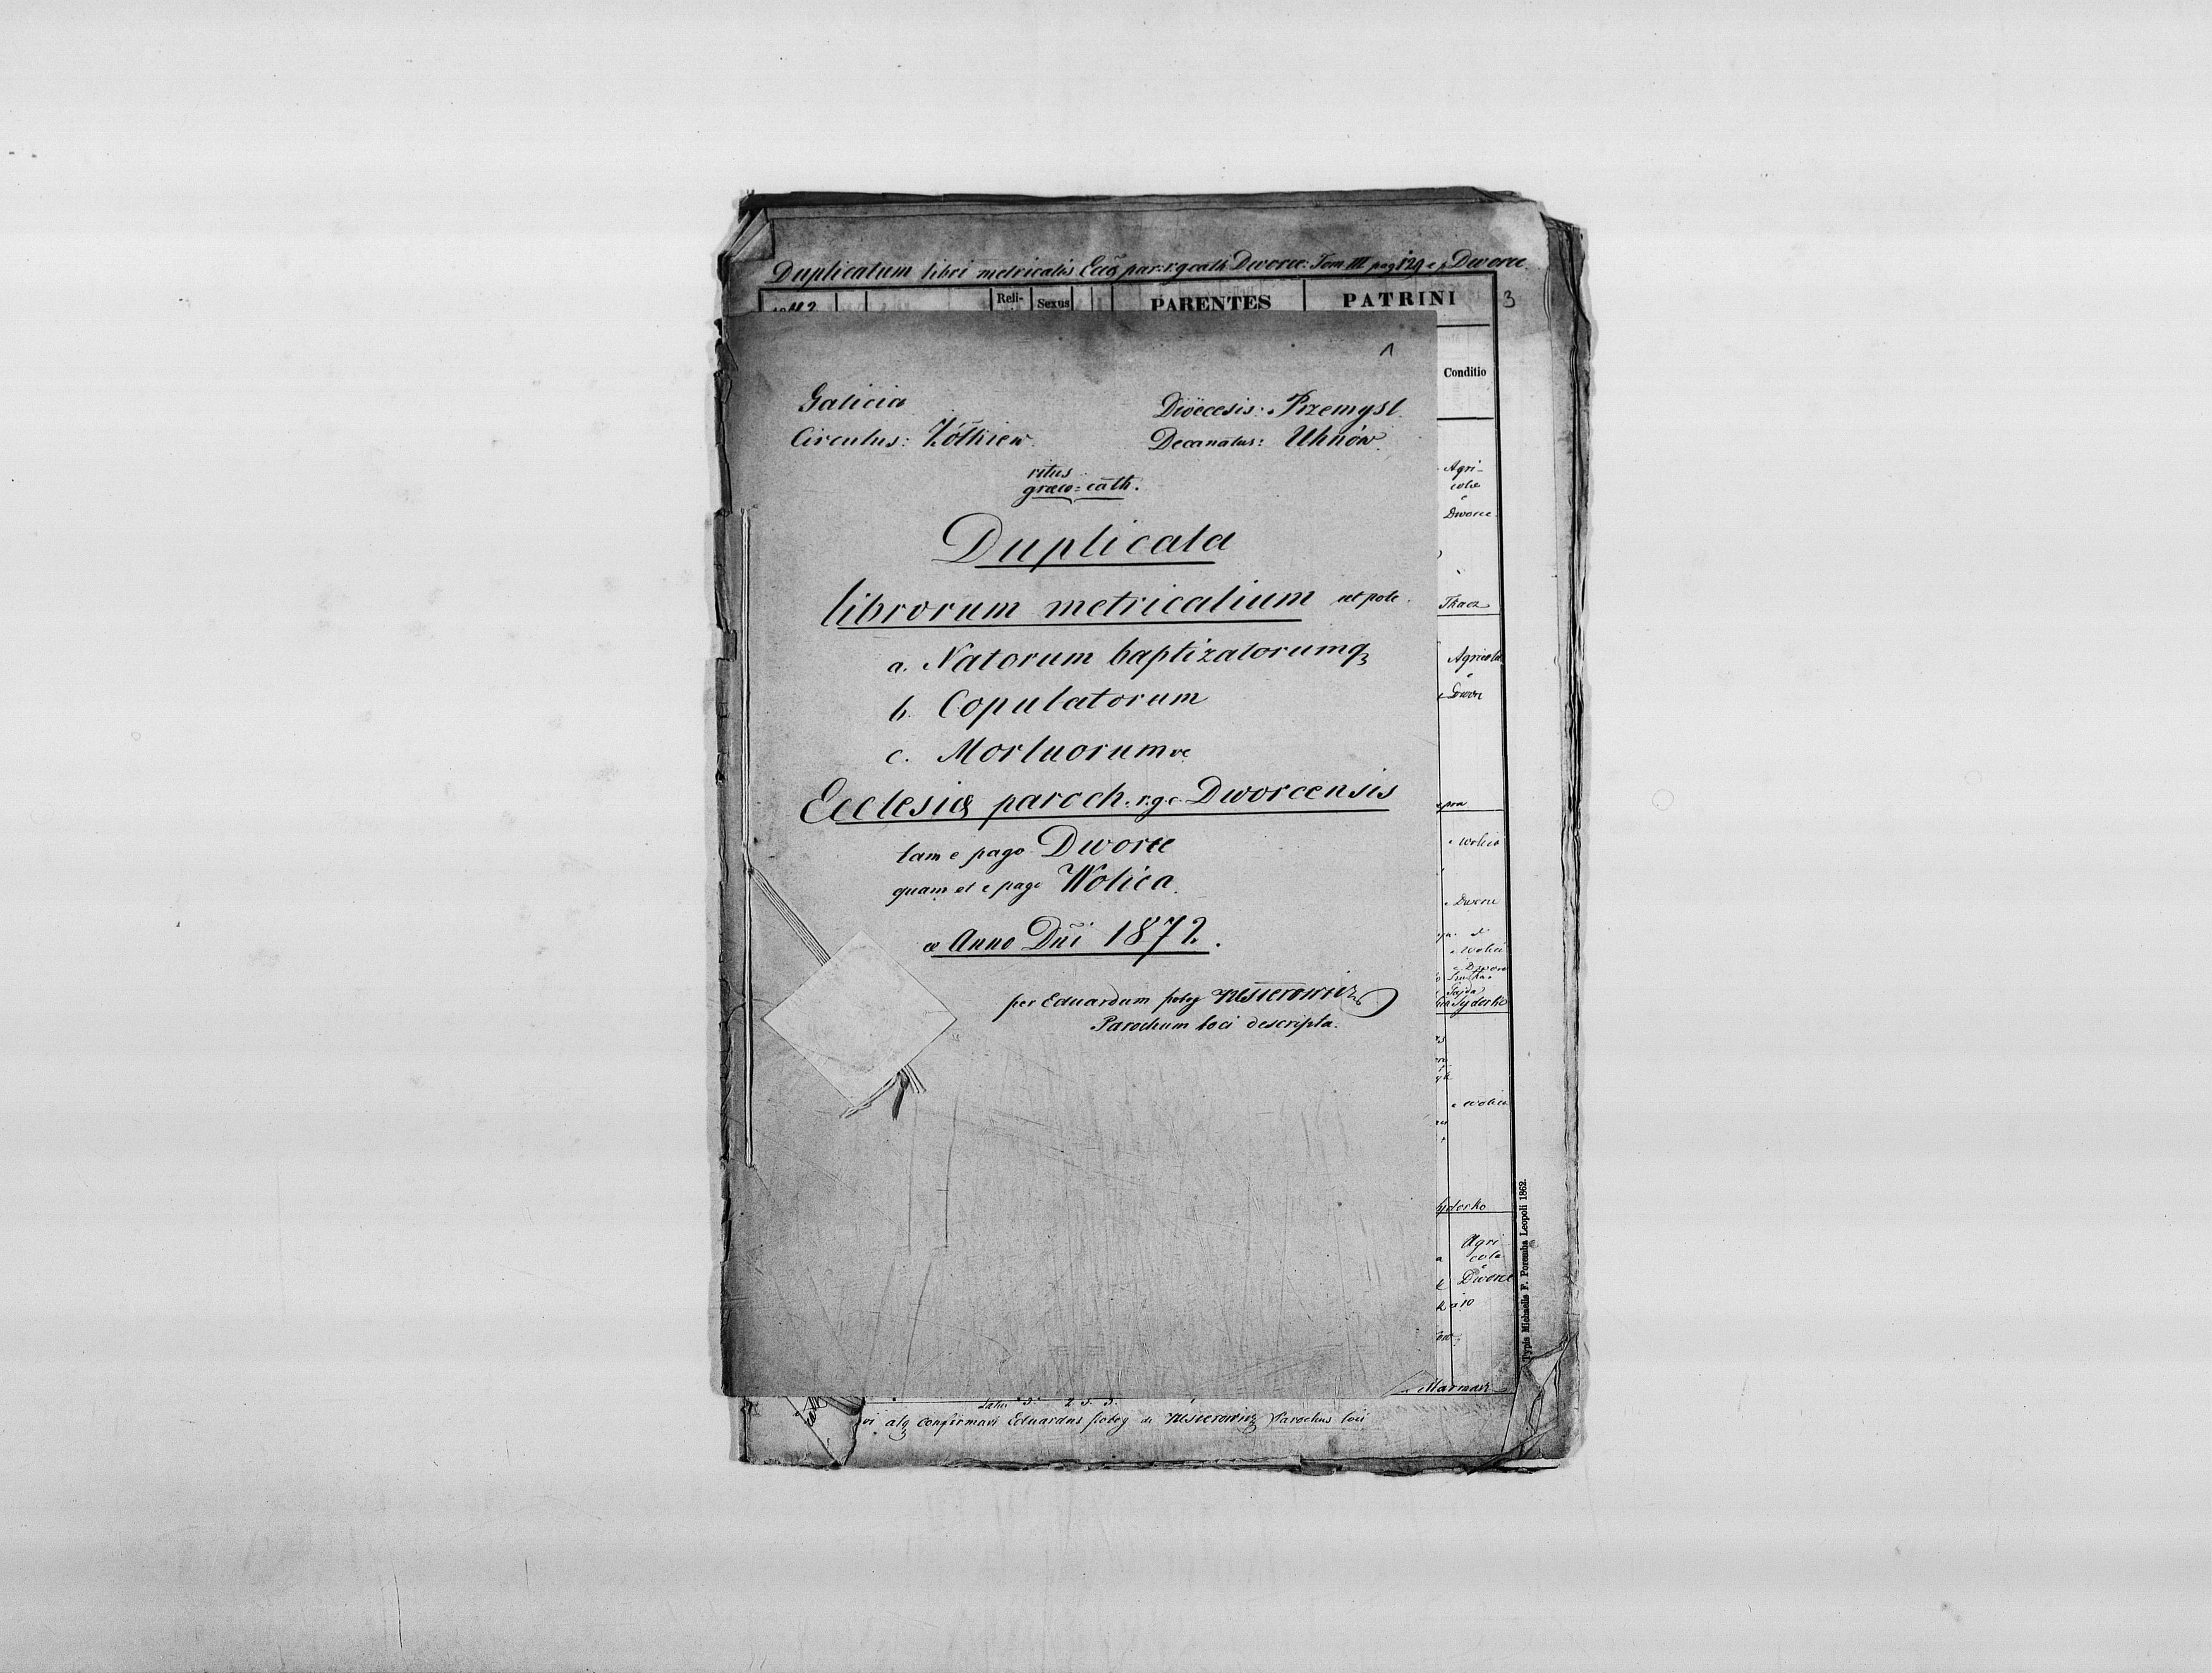 Duplicatum libri metricalis Eccl̃æ par. r. g. cath Dworce: Tom III pag 129 e p. Dworce
3
Reli-
Sexus
PARENTES
PATRINI
1
Conditio
Galicia
Dioecesis: Przemyśl
Circulus: Żółkiew.
Decanatus: Uhnów.
ritus
græco=cath.
Duplicata
librorum metricalium utpote.
a. Natorum baptizatorumq
b. Copulatorum
c. Mortuorumve
Ecclesiæ paroch. r. g. c. Dworcensis
tam e pago Dworce
quam et e pago Wolica.
ex Anno Dñi 1872.
per Eduardum pobóg Nesterowicz
Parochum loci descripta.
Agri-
colæ
e
Dworce
Tkacz
Agricolæ
e
Dworce
e Wolica
e Dworce
e Wolica
Syderko
e Wolica
Syderko
Agri-
cola
e
Dworce
Typis Michaelis F. Poremba Leopoli 1862.
atq confirmavi Eduardus pobóg de Nesterowicz Parochus loci